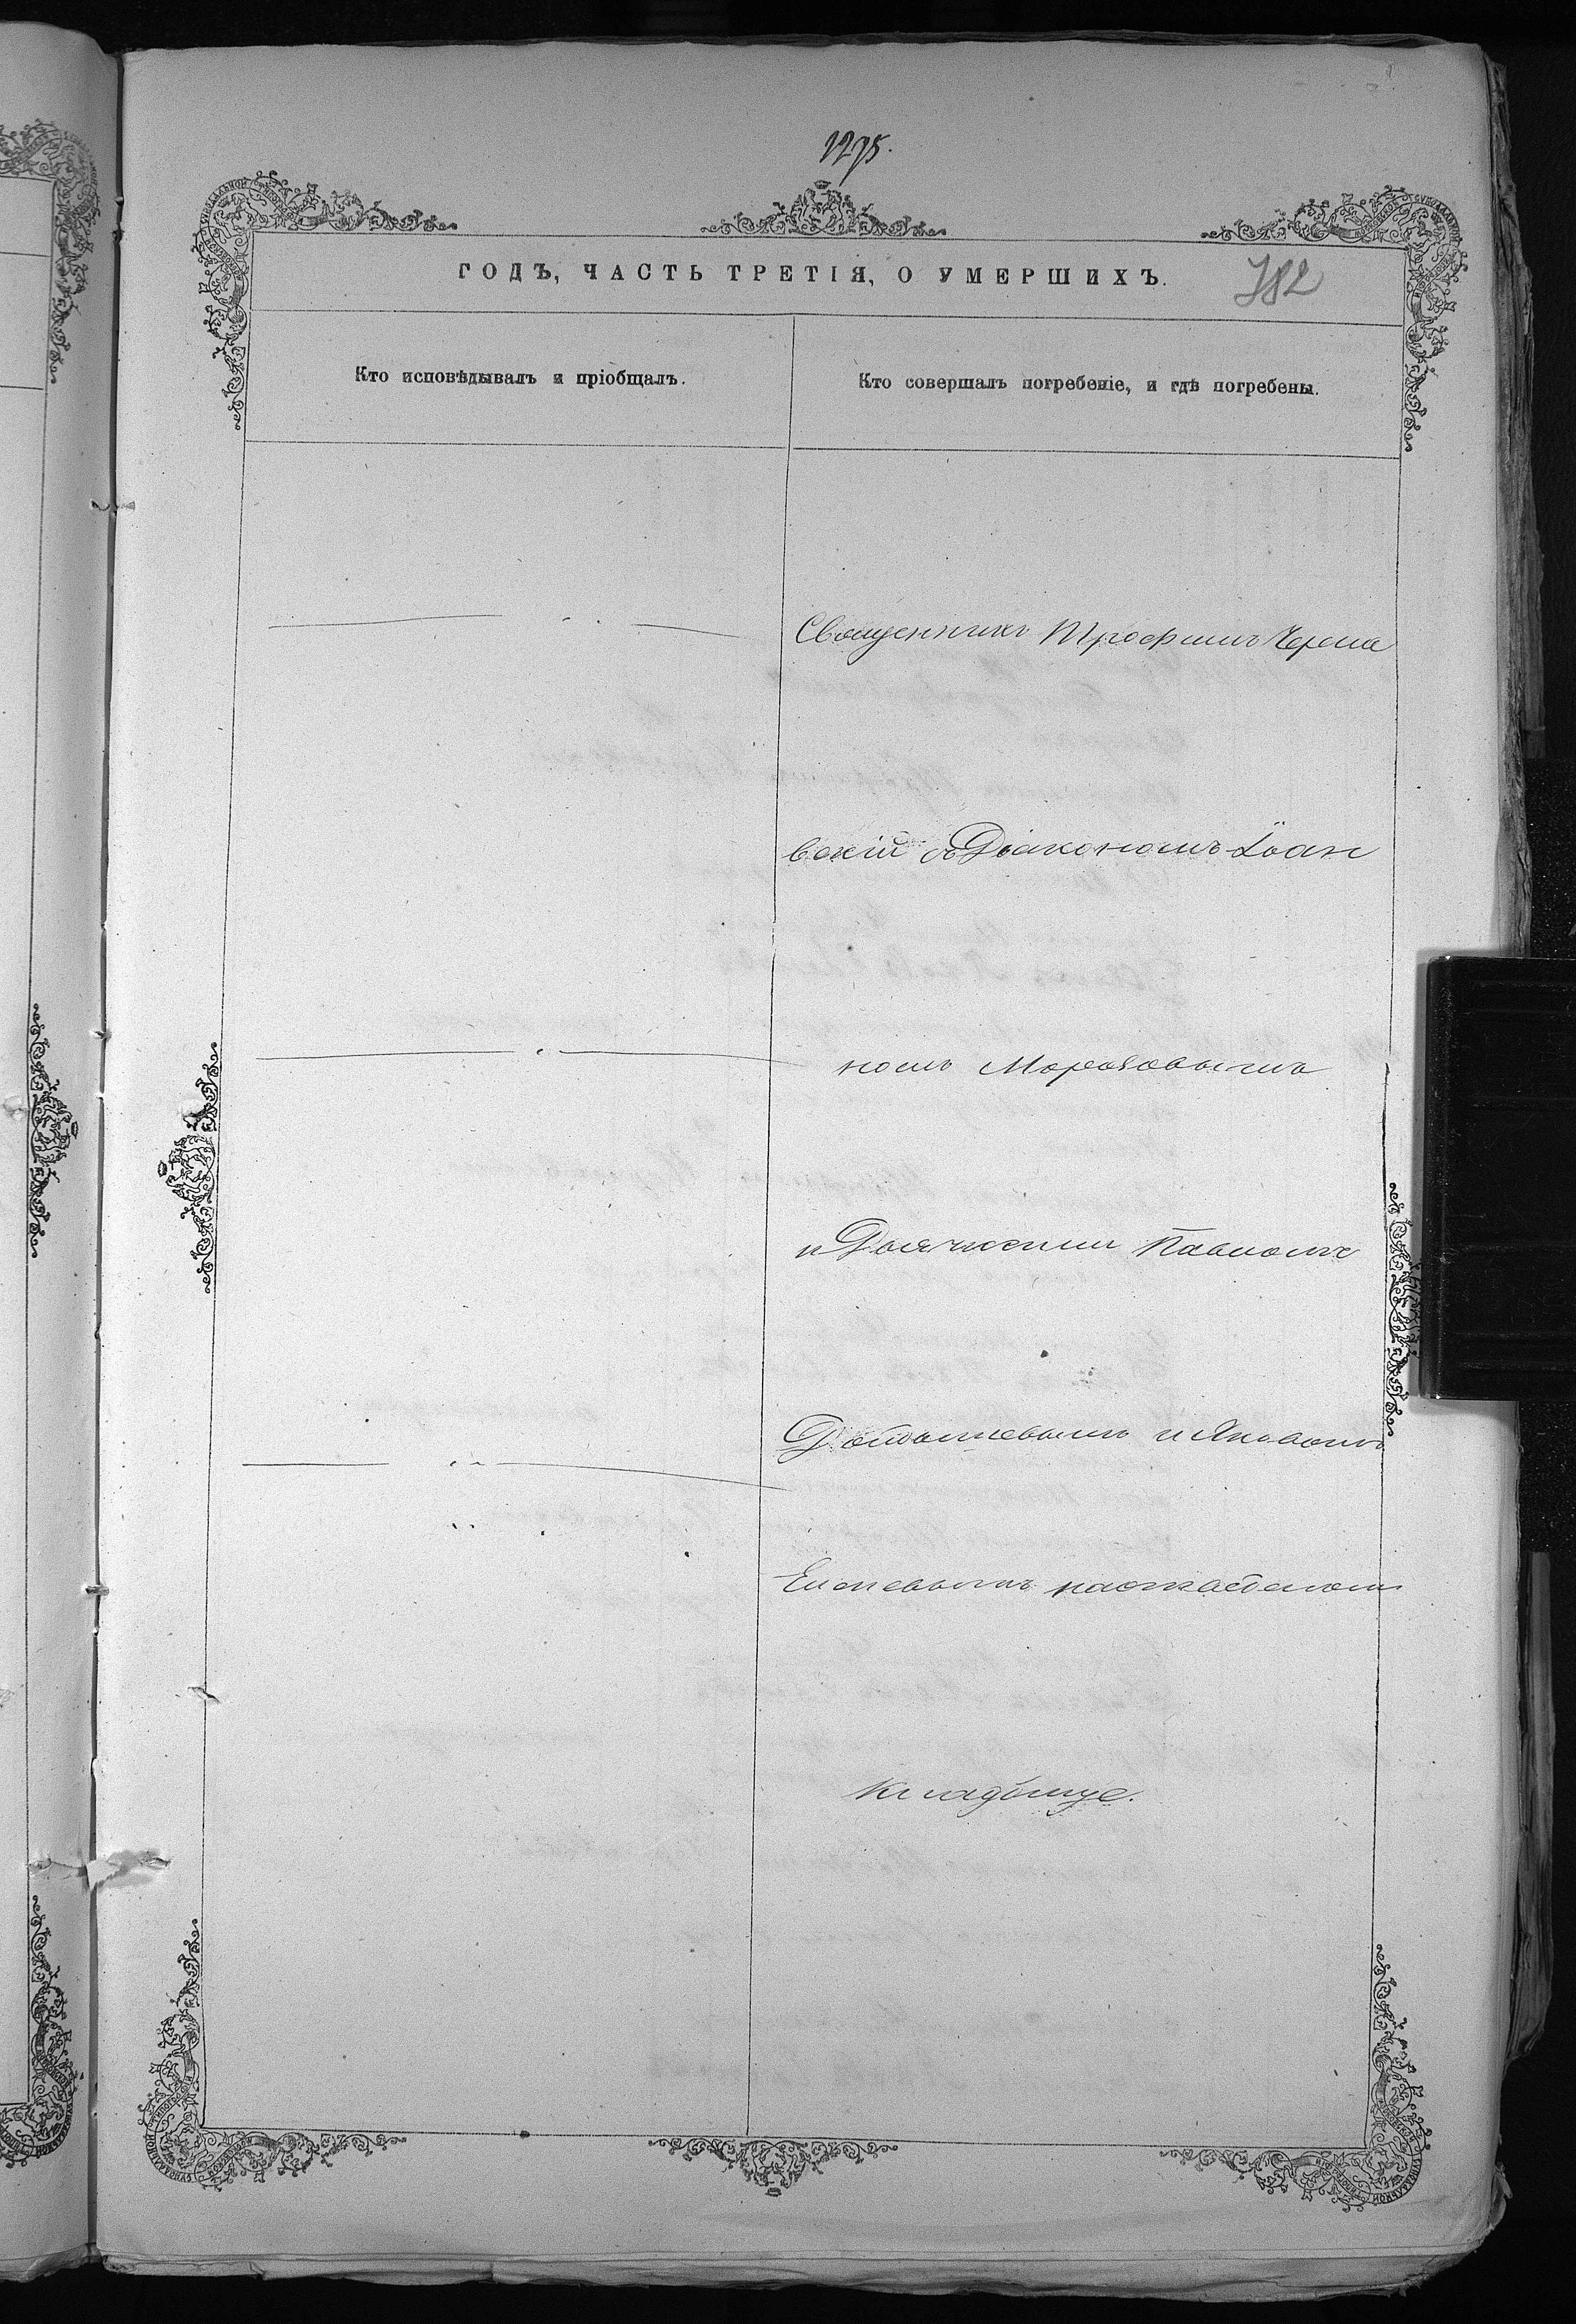 1275.
ГОДЪ, ЧАСТЬ ТРЕТІЯ, О УМЕРШИХЪ.
782
Кто исповѣдывалъ и пріобщалъ.
Кто совершалъ погребеніе, и гдѣ погребены.
Священникъ Трофимъ Черма
вскій съ Діакономъ Іоан
номъ Морозовымъ
и Дьячками Павломъ
и Яковомъ
Елисевымъ
кладбище.